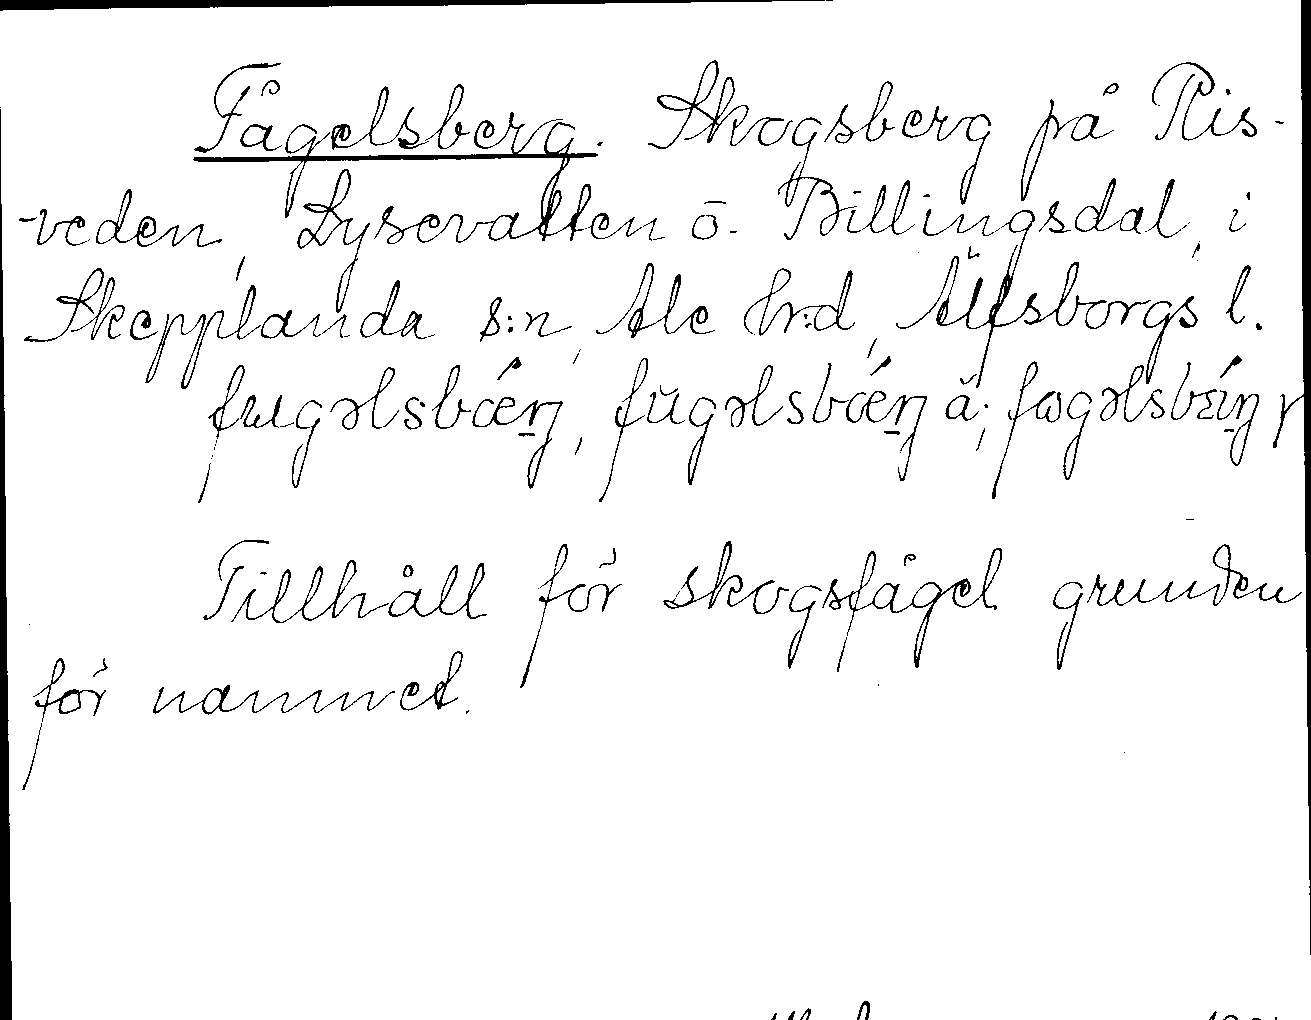 Fågelsberg. Skogsberg på Ris-
-veden, Lysevatten ö. Billingsdal, i
Skepplanda s:n, Ale hr:d, Älfsborgs l.
fɯgəlsbǽrŋ, fŭgəlsbǽrŋ ä.;
Tillhåll för skogsfågel grunden
för namnet.